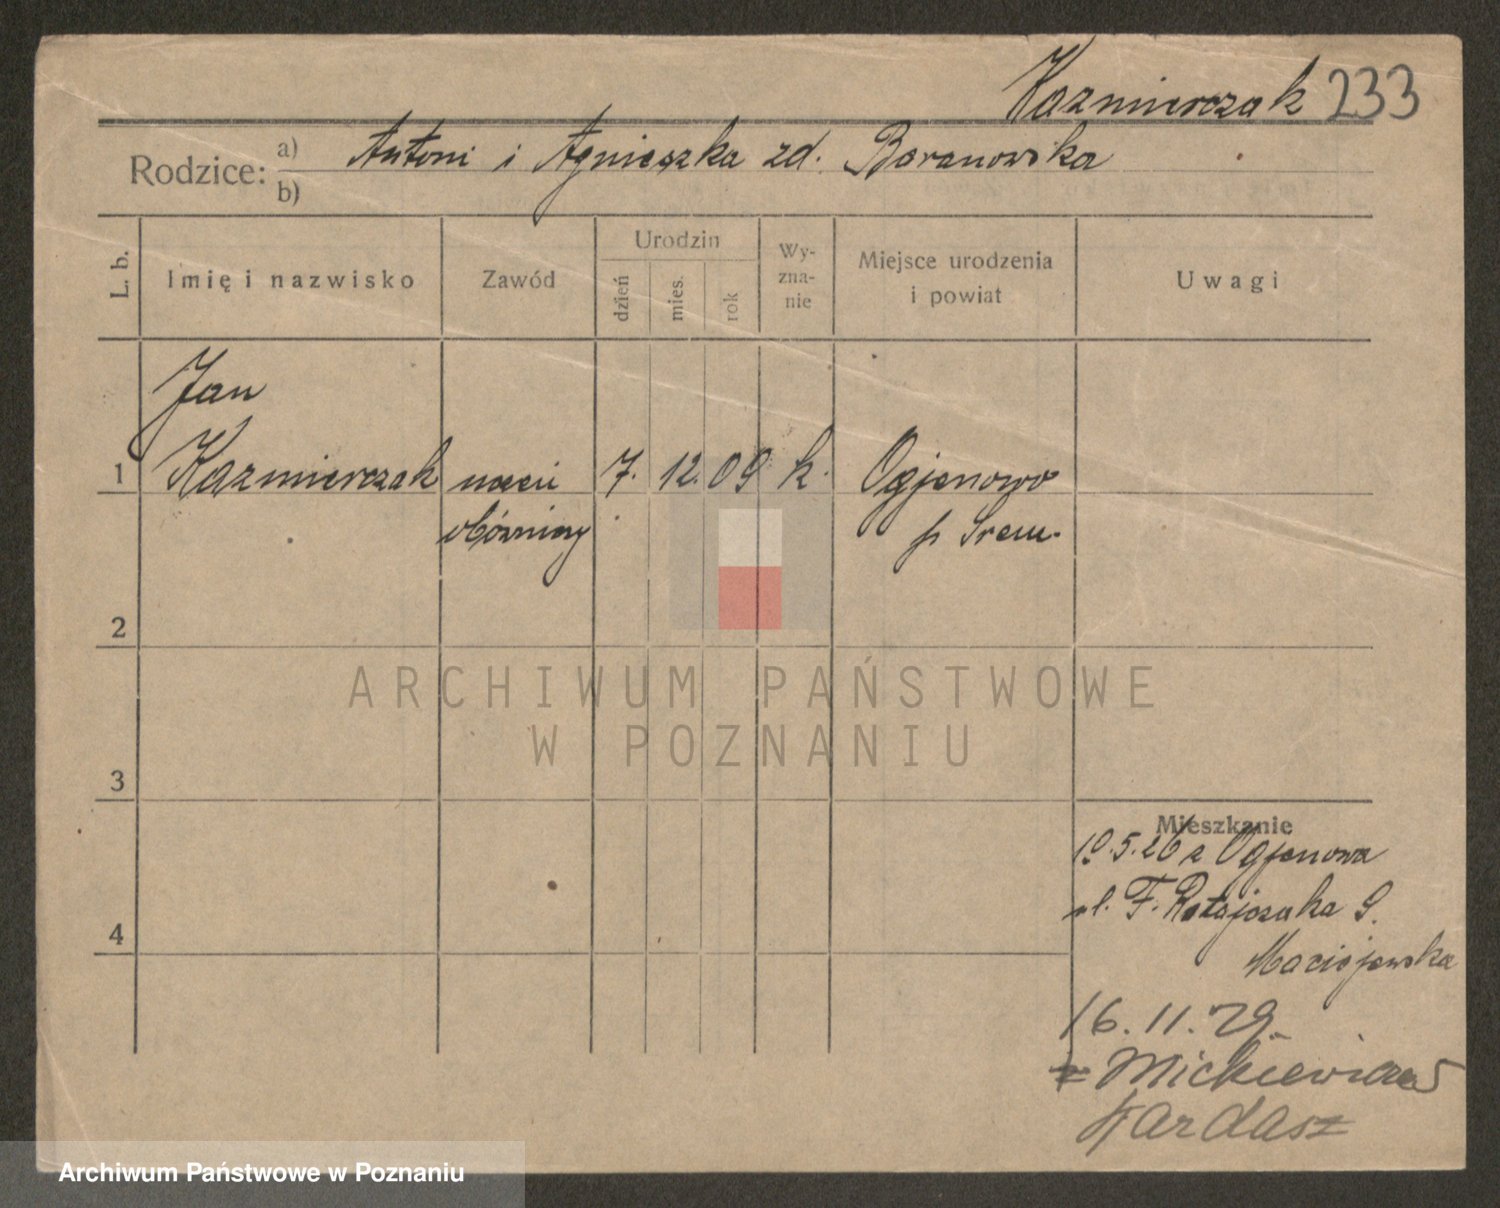 Kazmierczak 233
Rodzice: a) Antoni i Agnieszka zd. Baranowska
b)
L. b.
Imię i nazwisko
Zawód
Urodzin
dzień
mies.
rok
Wy-
zna-
nie
Miejsce urodzenia
i powiat
Uwagi
Jan
1 Kazmierczak uczeń 7. 12. 09 k. Ogjenowo
p Srem.
2
3
4
Mieszkanie
10.5.26 z Ogjenowa
ul. F. Ratajczaka 9.
Maciejewska
16.11.29.
Mickiewicza 5
Kardasz
ARCHIWUM PAŃSTWOWE
W POZNANIU
Archiwum Państwowe w Poznaniu